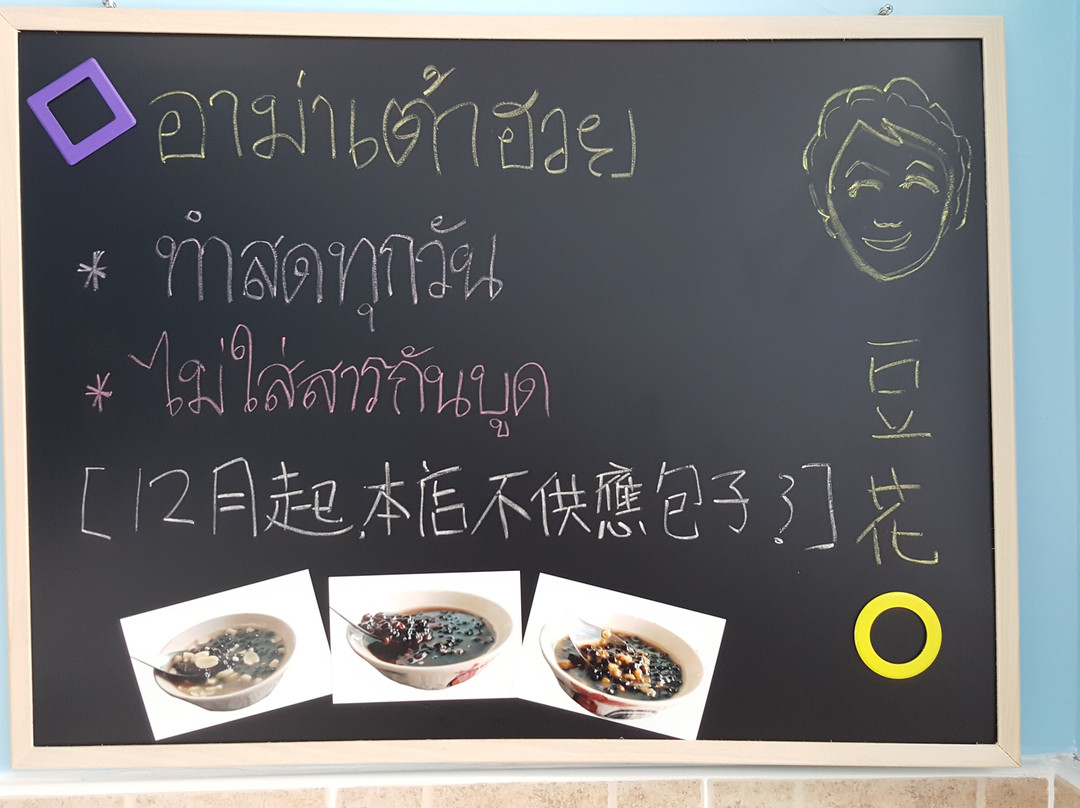 อาม่าเต้าฮวย
* ทำสดทุกวัน
* ไม่ใส่สารกันบูด
[12月起,本店不供應包子?]
豆花